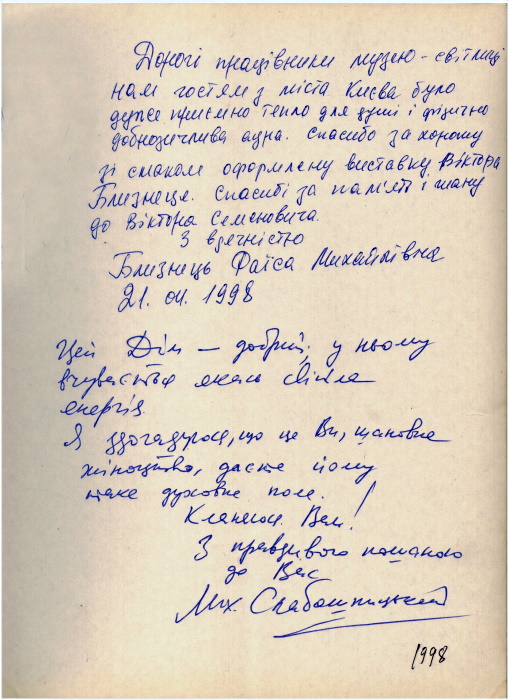 Дорогі працівники музею-світлиці
нам гостям з міста Києва було
дуже приємно тепло для душі і фізично
доброзичлива аура. Спасибо за хорошу
зі смаком оформлену виставку Віктора
Близнеця. Спасибі за пам'ять і шану
до Віктора Семеновича
З вдячністю
Близнець Раїса Михайлівна
21. 04. 1998
Цей Дім — добрий, у ньому
вчувається якась світла
енергія.
Я здогадуюся, що це Ви, шановне
жіноцтво, даєте йому
таке духовне поле.
Кланяюся Вам!
З правдивою пошаною
до Вас
Мих. Слабошпицький
1998